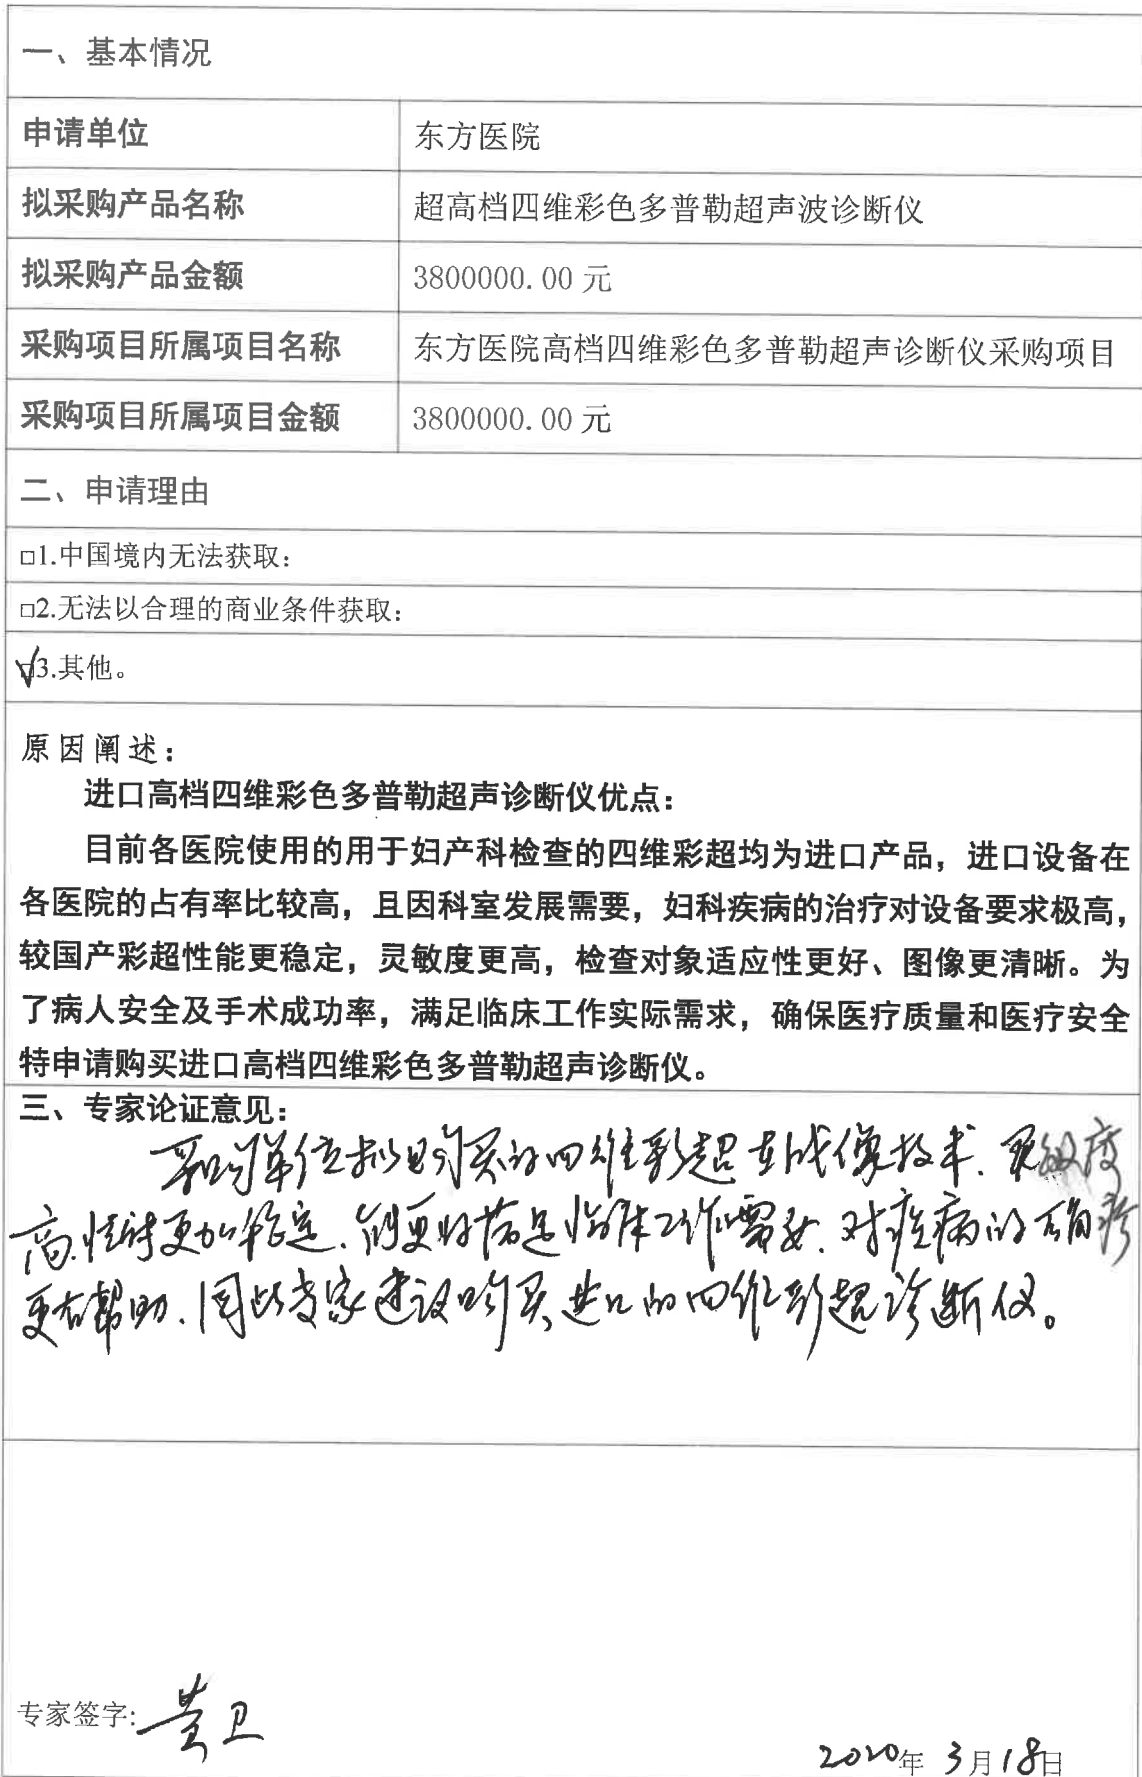 一、基本情况
申请单位 东方医院
拟采购产品名称 超高档四维彩色多普勒超声波诊断仪
拟采购产品金额 3800000.00 元
采购项目所属项目名称 东方医院高档四维彩色多普勒超声诊断仪采购项目
采购项目所属项目金额 3800000.00 元
二、申请理由
□1.中国境内无法获取：
□2.无法以合理的商业条件获取：
☑3.其他。
原因阐述：
进口高档四维彩色多普勒超声诊断仪优点：
目前各医院使用的用于妇产科检查的四维彩超均为进口产品，进口设备在
各医院的占有率比较高，且因科室发展需要，妇科疾病的治疗对设备要求极高，
较国产彩超性能更稳定，灵敏度更高，检查对象适应性更好、图像更清晰。为
了病人安全及手术成功率，满足临床工作实际需求，确保医疗质量和医疗安全
特申请购买进口高档四维彩色多普勒超声诊断仪。
三、专家论证意见：
采购单位拟购买的四维彩超在成像技术、灵敏度
高、性能更加稳定、能更好满足临床工作需要、对疾病的确诊
更有帮助、因此专家建议购买进口的四维彩超诊断仪。
专家签字: 黄卫
2020年 3月18日